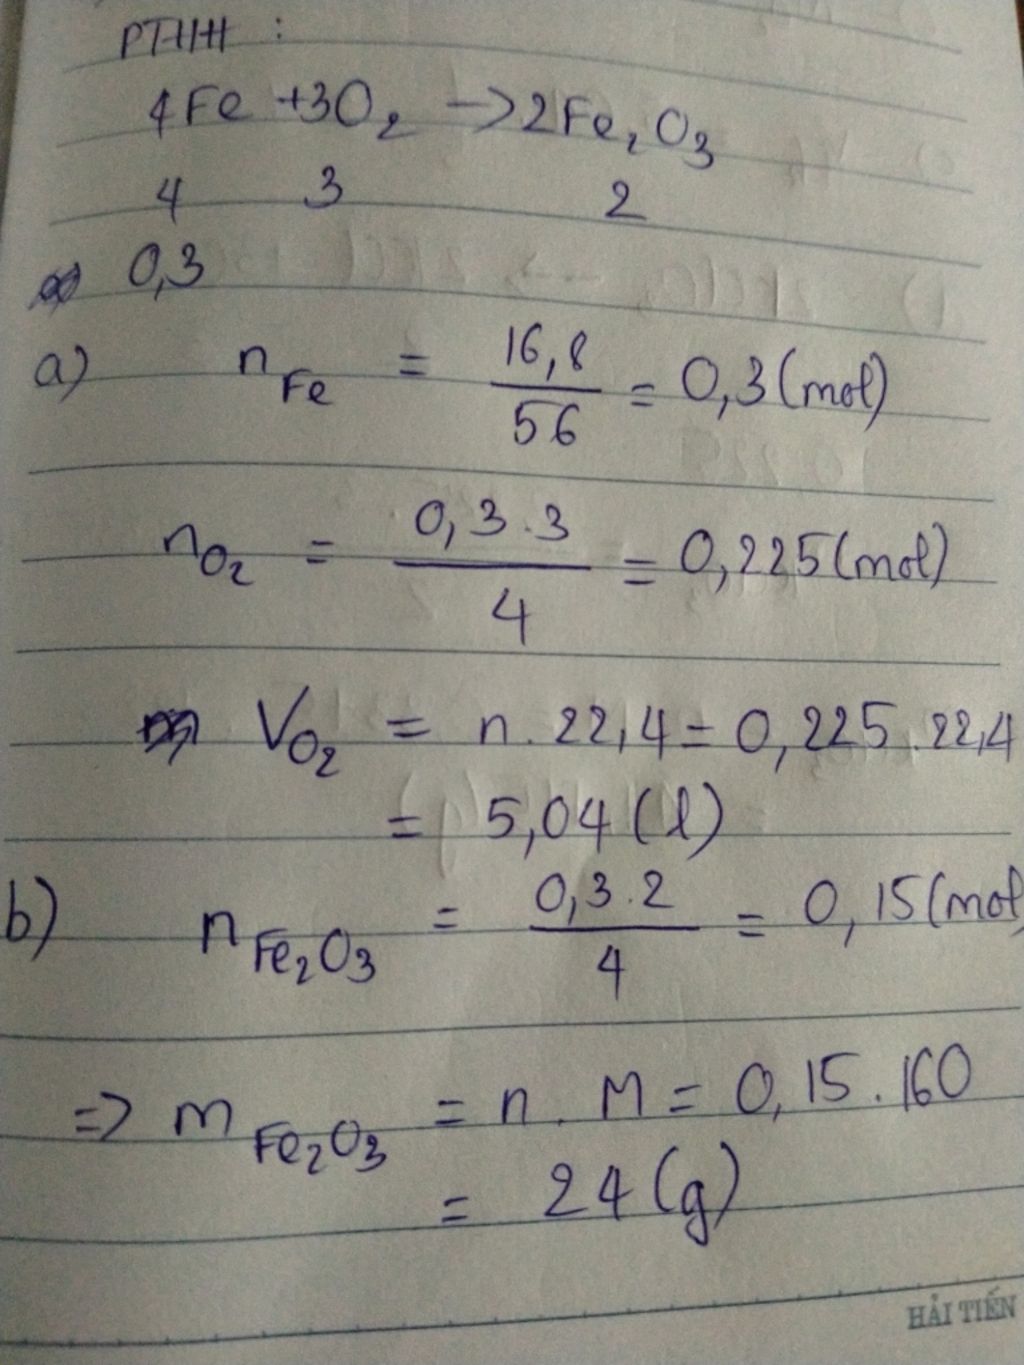 PTHH :
4Fe +3O₂ → 2Fe₂O₃
4 3 2
0,3
a) nFe = 16,8/56 = 0,3 (mol)
nO₂ = 0,3.3/4 = 0,225 (mol)
VO₂ = n. 22,4 = 0,225.22,4
= 5,04 (l)
b) nFe₂O₃ = 0,3.2/4 = 0,15 (mol
=> mFe₂O₃ = n. M = 0,15.160
= 24 (g)
HẢI TIẾN